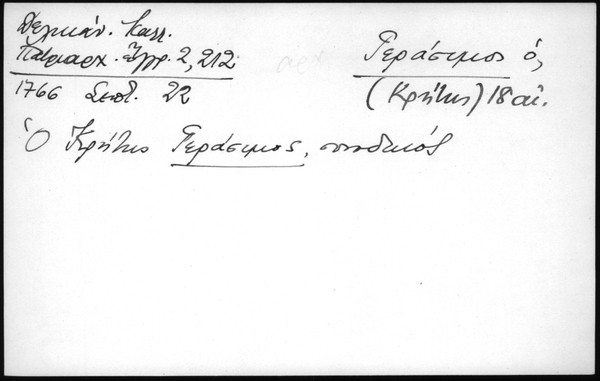 Δελικάν. Καλλ.
Πατριαρχ. Ἔγγρ. 2, 212
1766 Σεπτ. 22
Γεράσιμος ὁ,
(Κρήτης) 18 αἰ.
Ὁ Κρήτης Γεράσιμος, συνοδικός